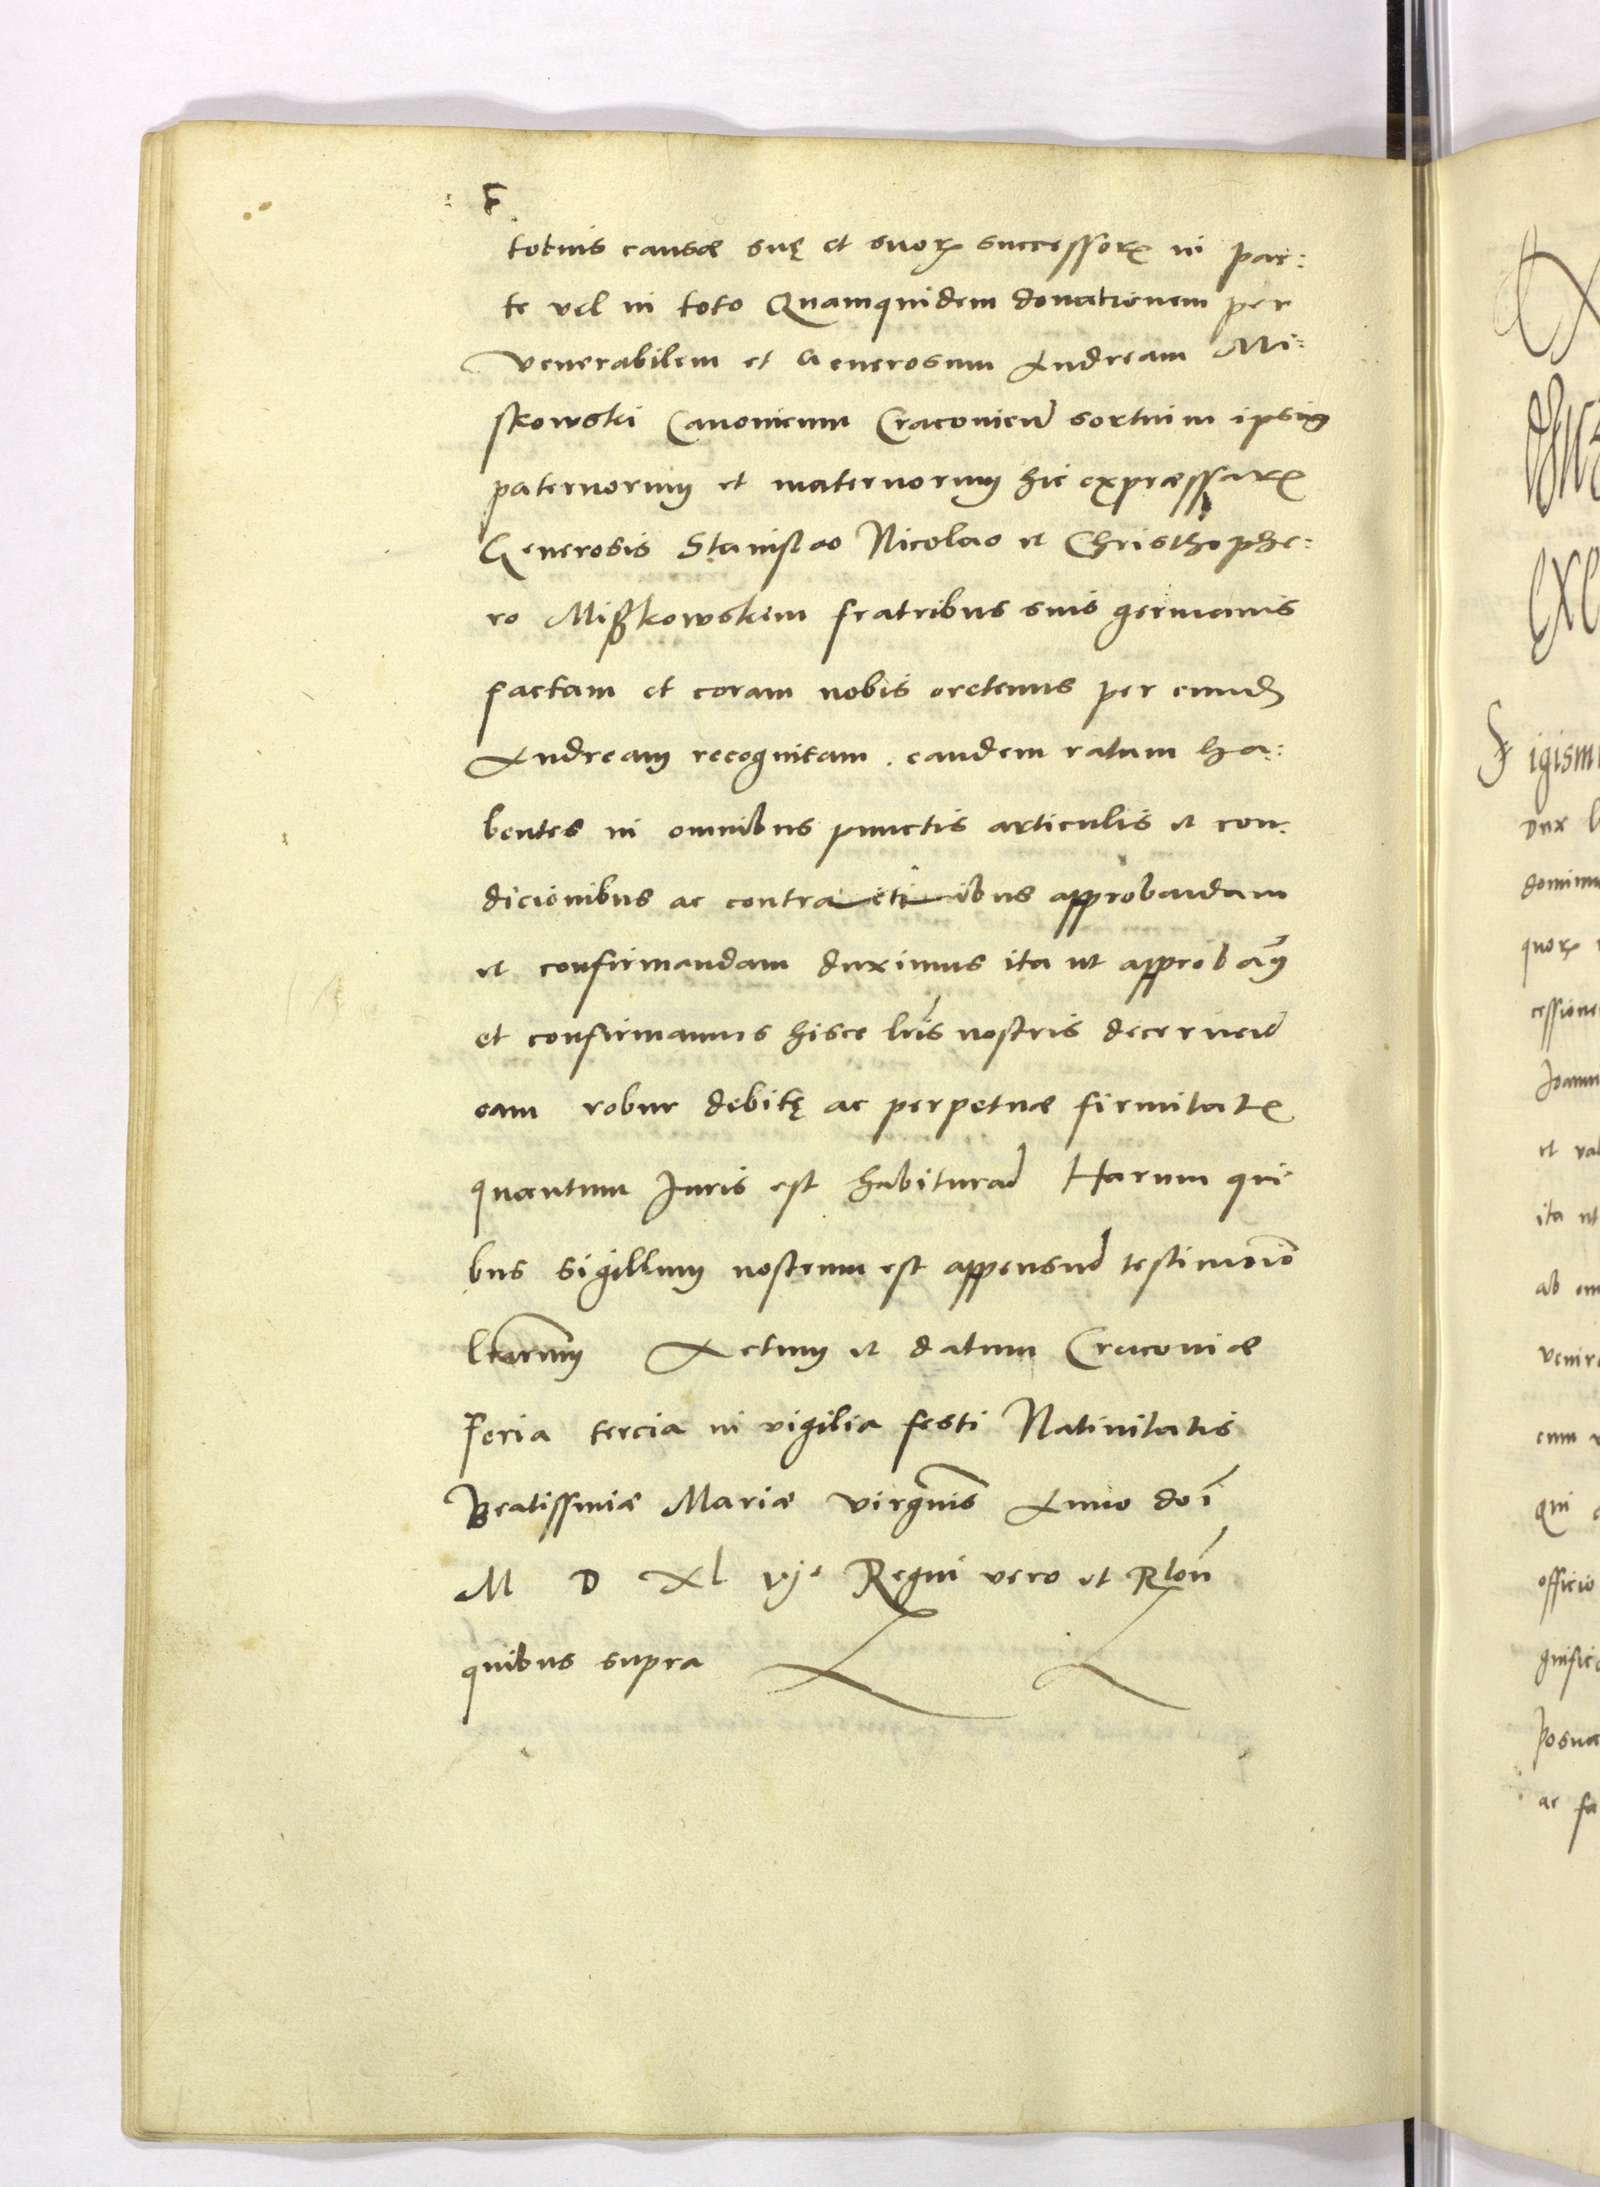 totius causæ suę et suorꝝ successorꝝ in par:
te vel in toto Quamquidem donationem per
venerabilem et Generosum Andream Mi:
skowski Canonicum Cracovien̄ sortium ipsius
paternorum et maternorum hic expressarꝝ
Generosis Stanislao Nicolao et Christhophe:
ro Mißkowskim fratribus suis germanis
factam et coram nobis oretenus per eundē
Andream recognitam. eandem ratam ha:
bentes in omnibus punctis articulis et con:
dicionibus ac contractibus approbandam
et confirmandam duximus ita ut approbam9
et confirmamus hisce lr̄is nostris decernen̄
eam robur debitę ac perpetuæ firmitatꝭ
quantum Juris est habituram Harum qui
bus sigillum nostrum est appensum testimonio
l̄rarum Actum et datum Cracoviæ
Feria tercia in vigilia festi Nativitatis
Beatissimæ Mariæ virginis Anno dn̄i
M D Xl vjo Regni vero et Rlōn
quibus supra
Sigism
Dux
domin
quorꝝ
cessione
Joann
et val
ita ut
ab om
venir
cum
qui
officio
gnific
Posna
ac fa